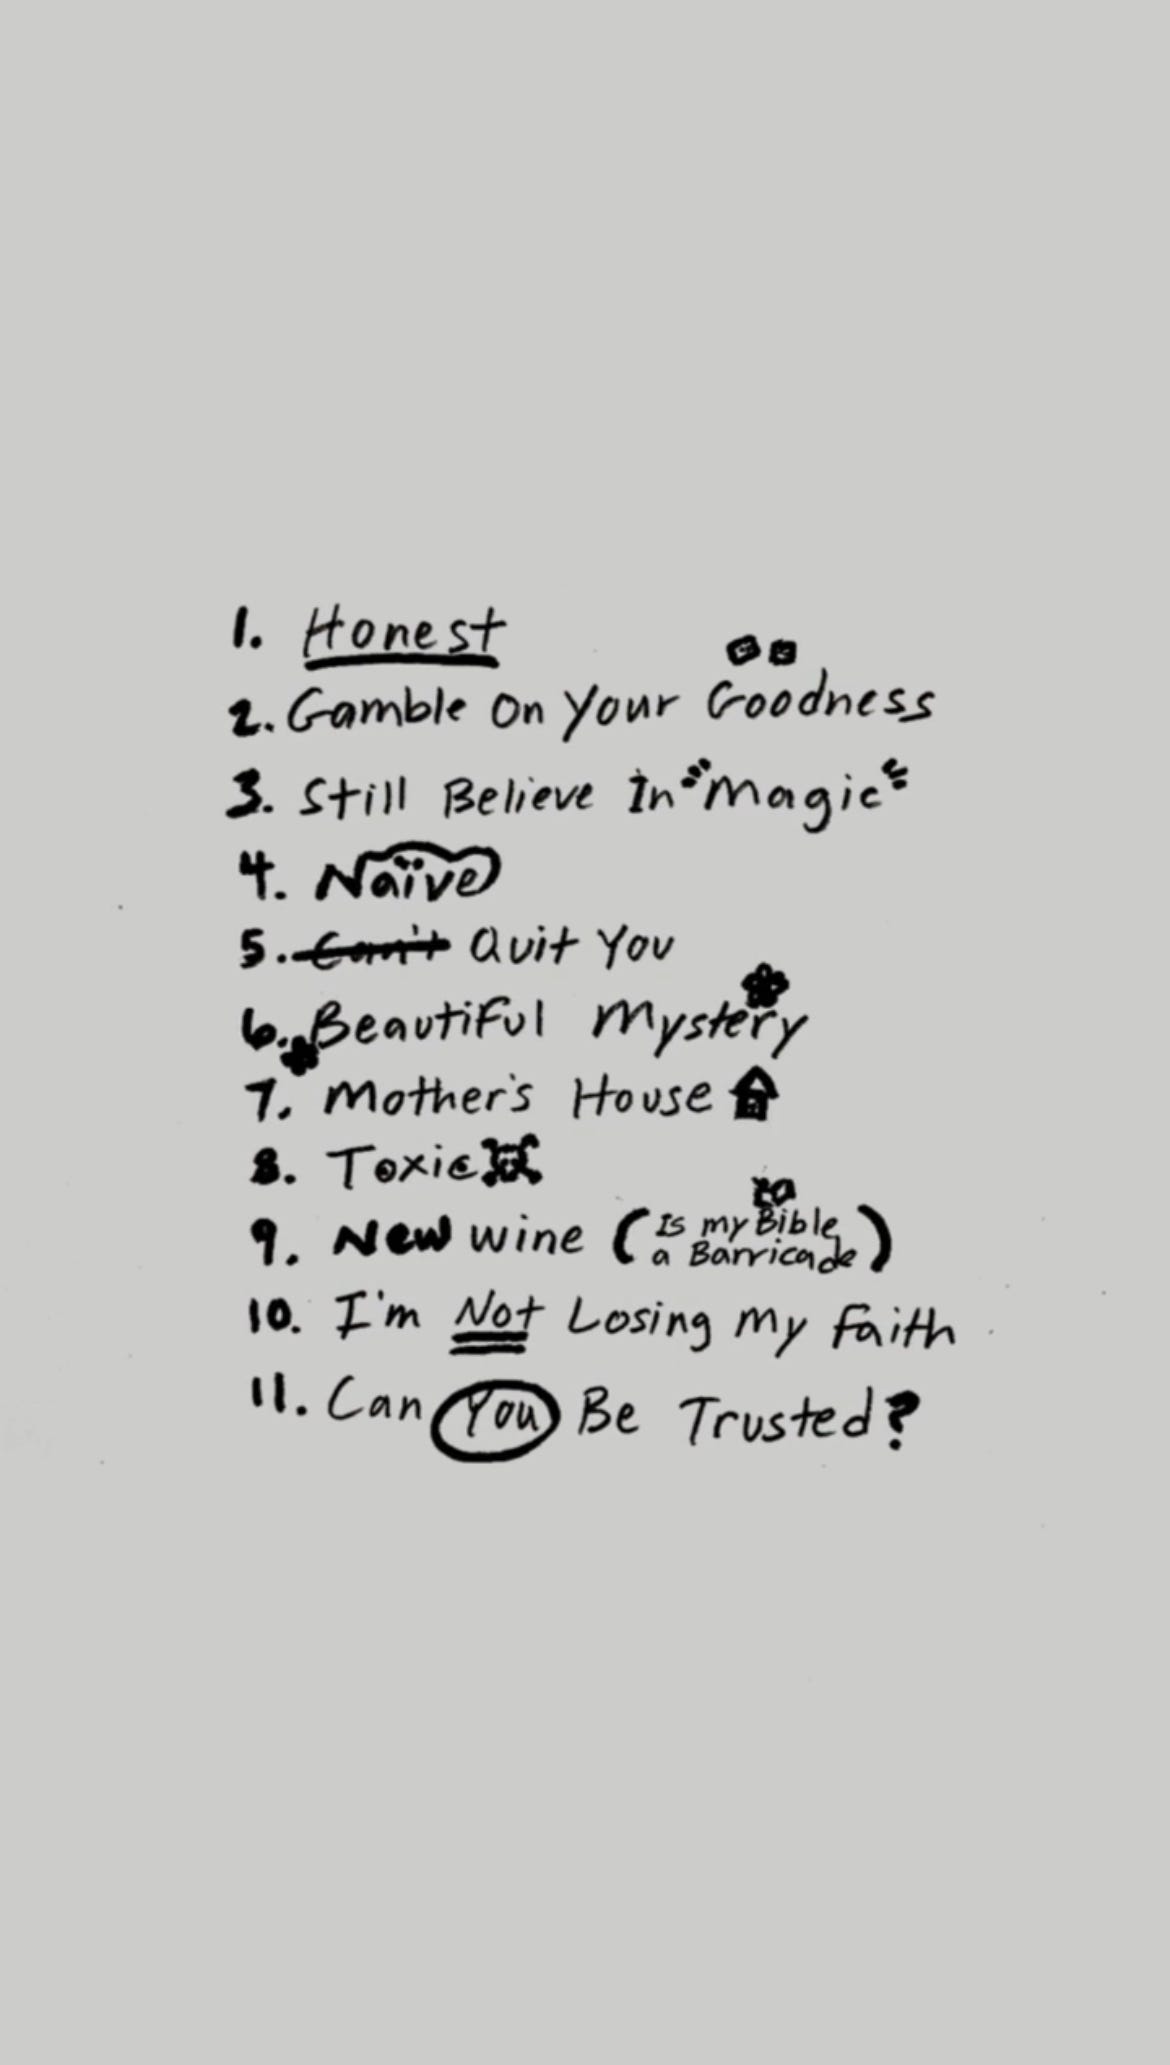 1. Honest
2. Gamble On Your Goodness
3. Still Believe In "Magic"
4. Naïve
5. Can't Quit You
6. Beautiful Mystery
7. Mother's House
8. Toxic
9. New wine (Is my Bible
a Barricade)
10. I'm Not Losing My Faith
11. Can You Be Trusted?